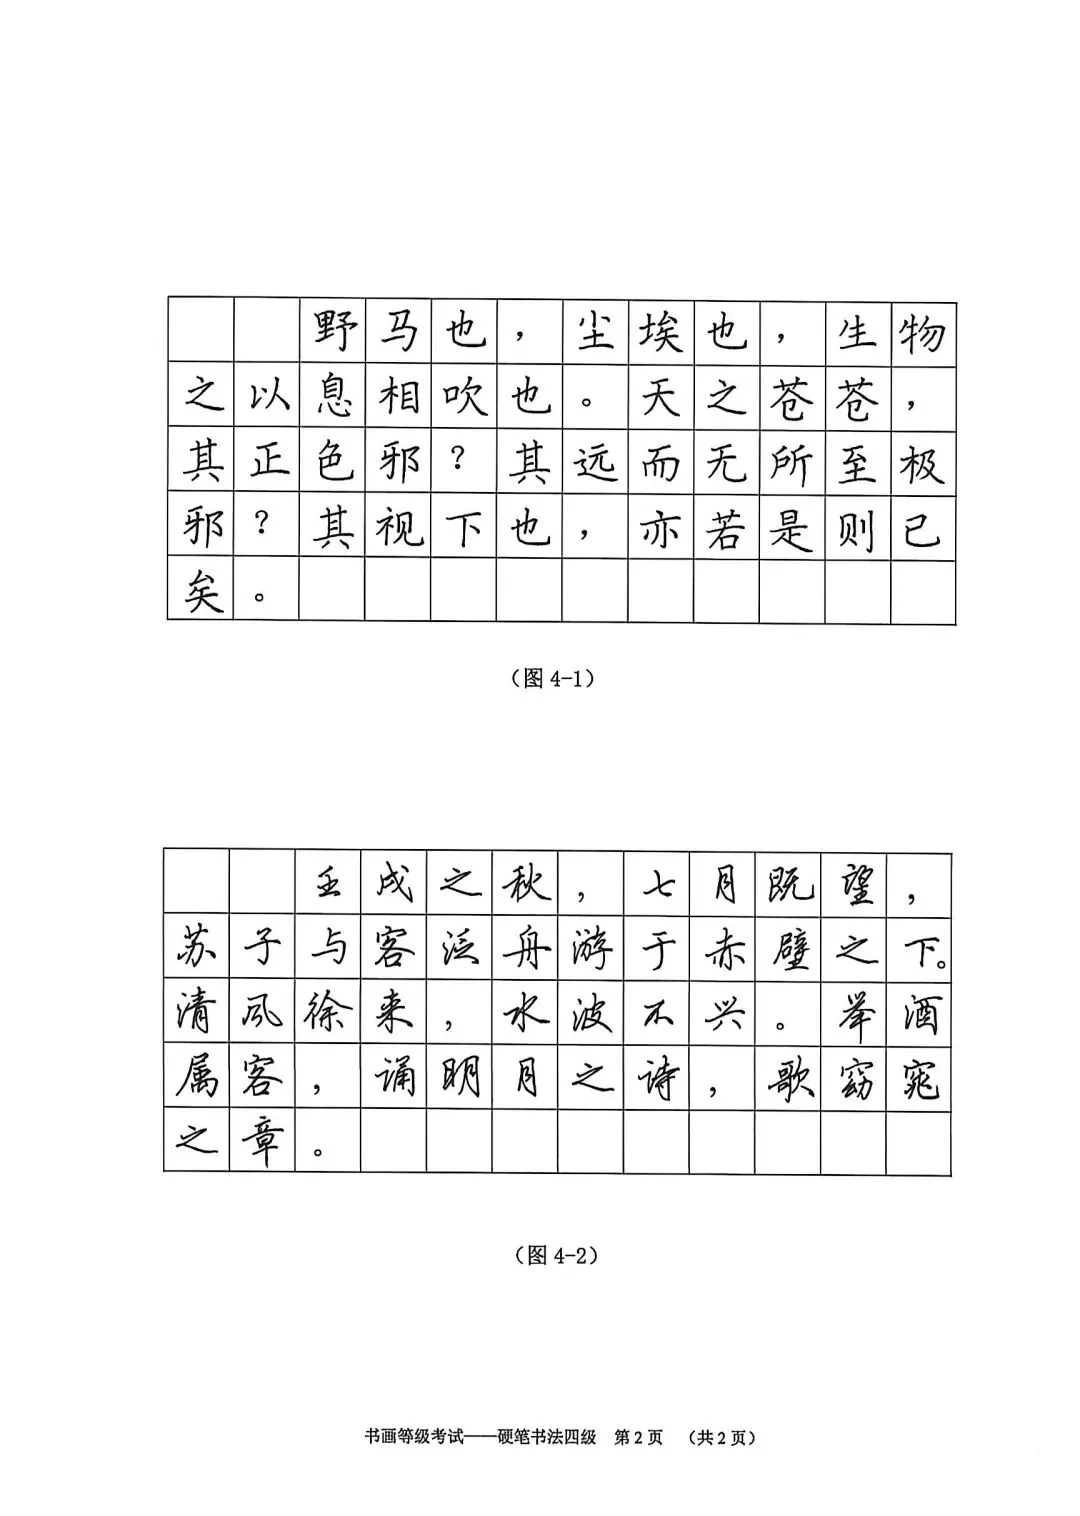 野马也，尘埃也，生物
之以息相吹也。天之苍苍，
其正色邪？其远而无所至极
邪？其视下也，亦若是则已
矣。
（图 4-1）
壬戌之秋，七月既望，
苏子与客泛舟游于赤壁之下。
清风徐来，水波不兴。举酒
属客，诵明月之诗，歌窈窕
之章。
（图 4-2）
书画等级考试——硬笔书法四级 第 2 页 （共 2 页）